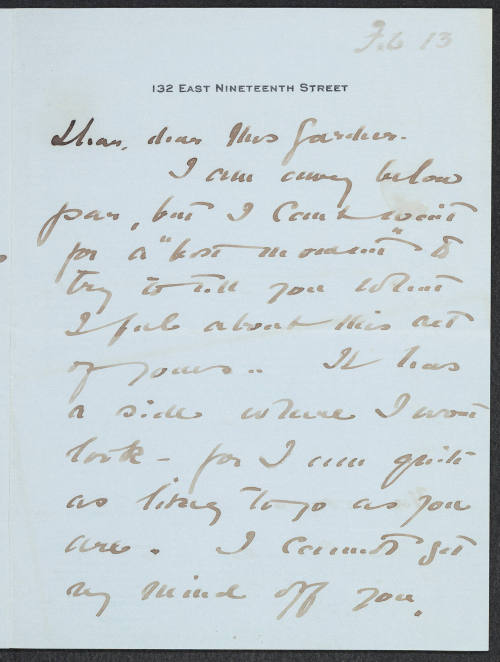 Feb 13
132 EAST NINETEENTH STREET
Dear, dear Mrs Gardner.
I am away below
par, but I can't wait
for a "best moment" to
try to tell you what
I feel about this act
of yours.. It has
a side where I wont
look - for I am quite
as likely to go as you
are. I cannot get
my mind off you.